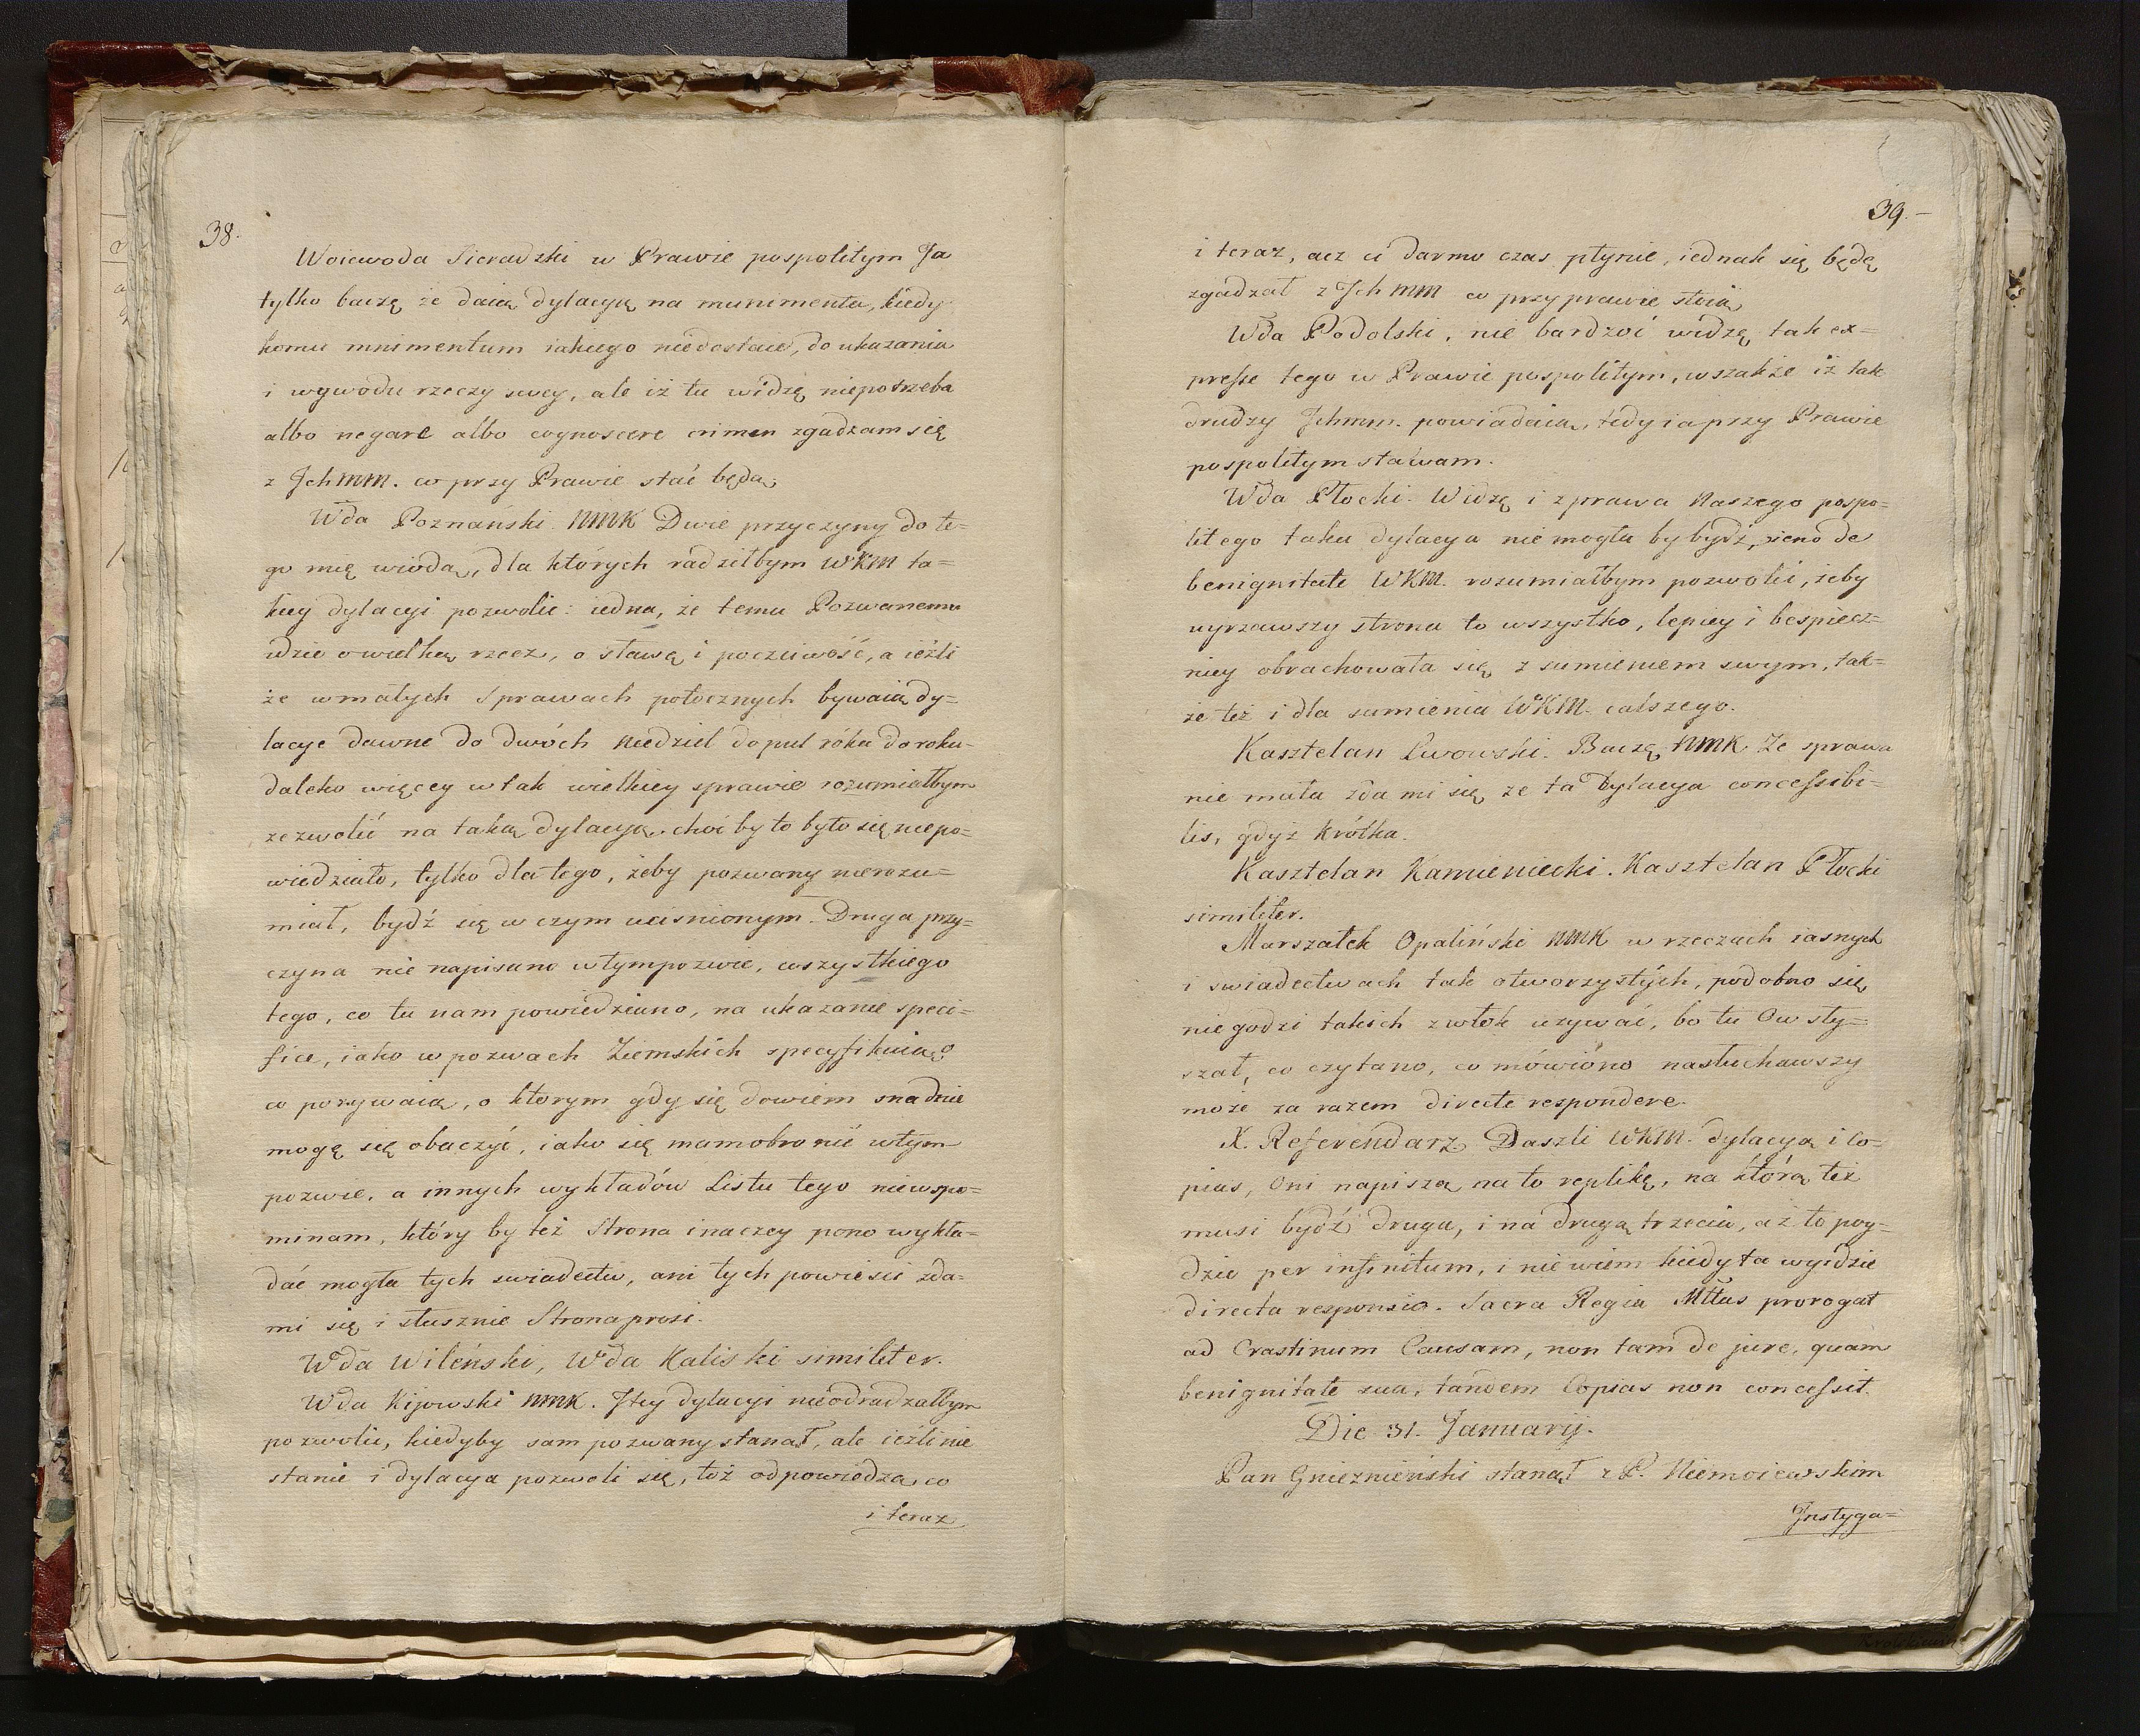 38.
Woiewoda Sieradzki w Prawie pospolitym Ja
tylko baczę że daią dylacyią na munimenta, kiedy
komu mnimentum iakiego niedostaie, do ukazania
i wywodu rzeczy swey, ale iż tu widzę niepotrzeba
albo negare albo cognoscere crimen zgadzam się
z Jchmm. co przy Prawie stać będą.
Wda Poznański. NMK Dwie przyczyny do te=
go mię wiodą, dla których radziłbym WKM ta=
kiey dylacyi pozwolić: iedna, że temu Pozwanemu
idzie o wielką rzecz, o sławę i poczciwość, a ieźli
że w małych sprawach potocznych bywaią dy=
lacye dawne do dwóch niedziel do puł róku do roku
daleko więcey w tak wielkiey sprawie rozumiałbym
zezwolić na taką dylacyą, choćby to było się niepo=
wiedziało, tylko dla tego, żeby pozwany nierozu=
miał, bydź się w czym uciśnionym. Druga przy=
czyna nie napisano w tym pozwie, wszystkiego
tego, co tu nam powiedziano, na ukazanie speci=
fice, iako w pozwach Ziemskich specyfikuią o
co pozywaią, o ktorym gdy się dowiem snadnie
mogę się obaczyć, iako się mam obronić w tym
pozwie, a innych wykładów Listu tego niewspo=
minam, który by też Strona inaczey pono wykła=
dać mogła tych swiadectw, ani tych powieści zda=
mi się i słusznie Strona prosi.
Wda Wileński, Wda Kaliski similiter.
Wda Kijowski NMK. Jtey dylacyi nieodradzałbym
pozwolić, kiedyby sam pozwany stanął, ale ieźli nie
stanie i dylacya pozwoli się, toż odpowiedzą co
i teraz
39.
i teraz, acz ci darmo czas płynie, iednak się będę
zgadzał z Jch MM co przy prawie stoią
Wda Podolski, nie bardzoć widzę tak ex=
presse tego w Prawie pospolitym, wszakże iż tak
drudzy Jchmm. powiadaią, tedy ia przy Prawie
pospolitym stawam.
Wda Płocki. Widzę i z prawa Naszego pospo=
litego taka dylacya nie mogła by bydź, ieno de
benignitate WKM. rozumiałbym pozwolić, żeby
uyrzawszy strona to wszystko, lepiey i bespiecz=
niey obrachowała się z sumieniem swym, tak=
że też i dla sumienia WKM. całszego.
Kasztelan Lwowski. Baczę NMK Ze sprawa
nie mała zda mi się ze ta Dylacya concessibi=
lis, gdyż krótka.
Kasztelan Kamieniecki. Kasztelan Płocki
similiter.
Marszałek Opaliński NMK w rzeczach iasnych
i swiadectwach tak otworzystych, podobno się
niegodzi takich zwłok używać, bo tu Ow sły=
szał, co czytano, co mówióno nasłuchawszy
może za razem directe respondere.
X. Referendarz Daszli WKM. dylacyą i Co=
pias, Oni napiszą na to replikę, na którą też
musi bydź druga, i na drugą trzecia, aż to poy=
dzie per infinitum, i nie wiem kiedy ta wyidzie
directa responsio. Sacra Regia Mttas prorogat
ad Crastinum Causam, non tam de jure, quam
benignitate sua, tandem Copias non concessit.
Die 31. Januarij.
Pan Gnieznieński stanął z P. Niemoiewskim
Jnstyga=